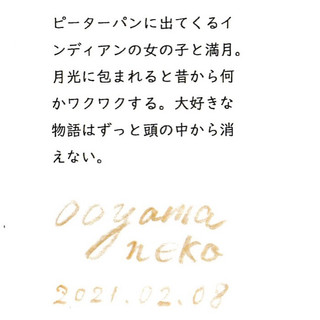 ピーターパンに出てくるイ
ンディアンの女の子と満月。
月光に包まれると昔から何
かワクワクする。大好きな
物語はずっと頭の中から消
えない。
ooyama
neko
2021.02.08